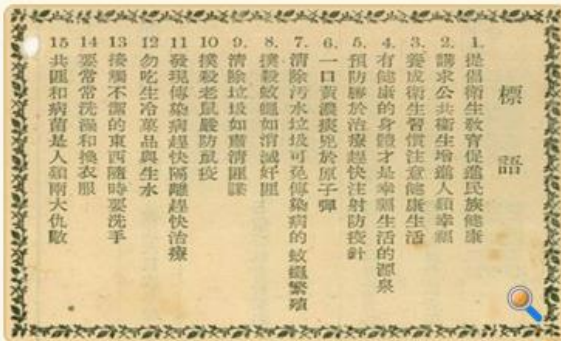 標語
1. 提倡衛生教育促進民族健康
2. 講求公共衛生增進人類幸福
3. 養成衛生習慣注意健康生活
4. 有健康的身體才是幸福生活的源泉
5. 預防勝於治療趕快注射防疫針
6. 一口黃濃痰兇於原子彈
7. 清除污水垃圾可免傳染病的蚊蠅繁殖
8. 撲殺蚊蠅如消滅奸匪
9. 清除垃圾如肅清匪諜
10 撲殺老鼠嚴防鼠疫
11 發現傳染病趕快隔離趕快治療
12 勿吃生冷菓品與生水
13 接觸不潔的東西隨時要洗手
14 要常常洗澡和換衣服
15 共匪和病菌是人類兩大仇敵